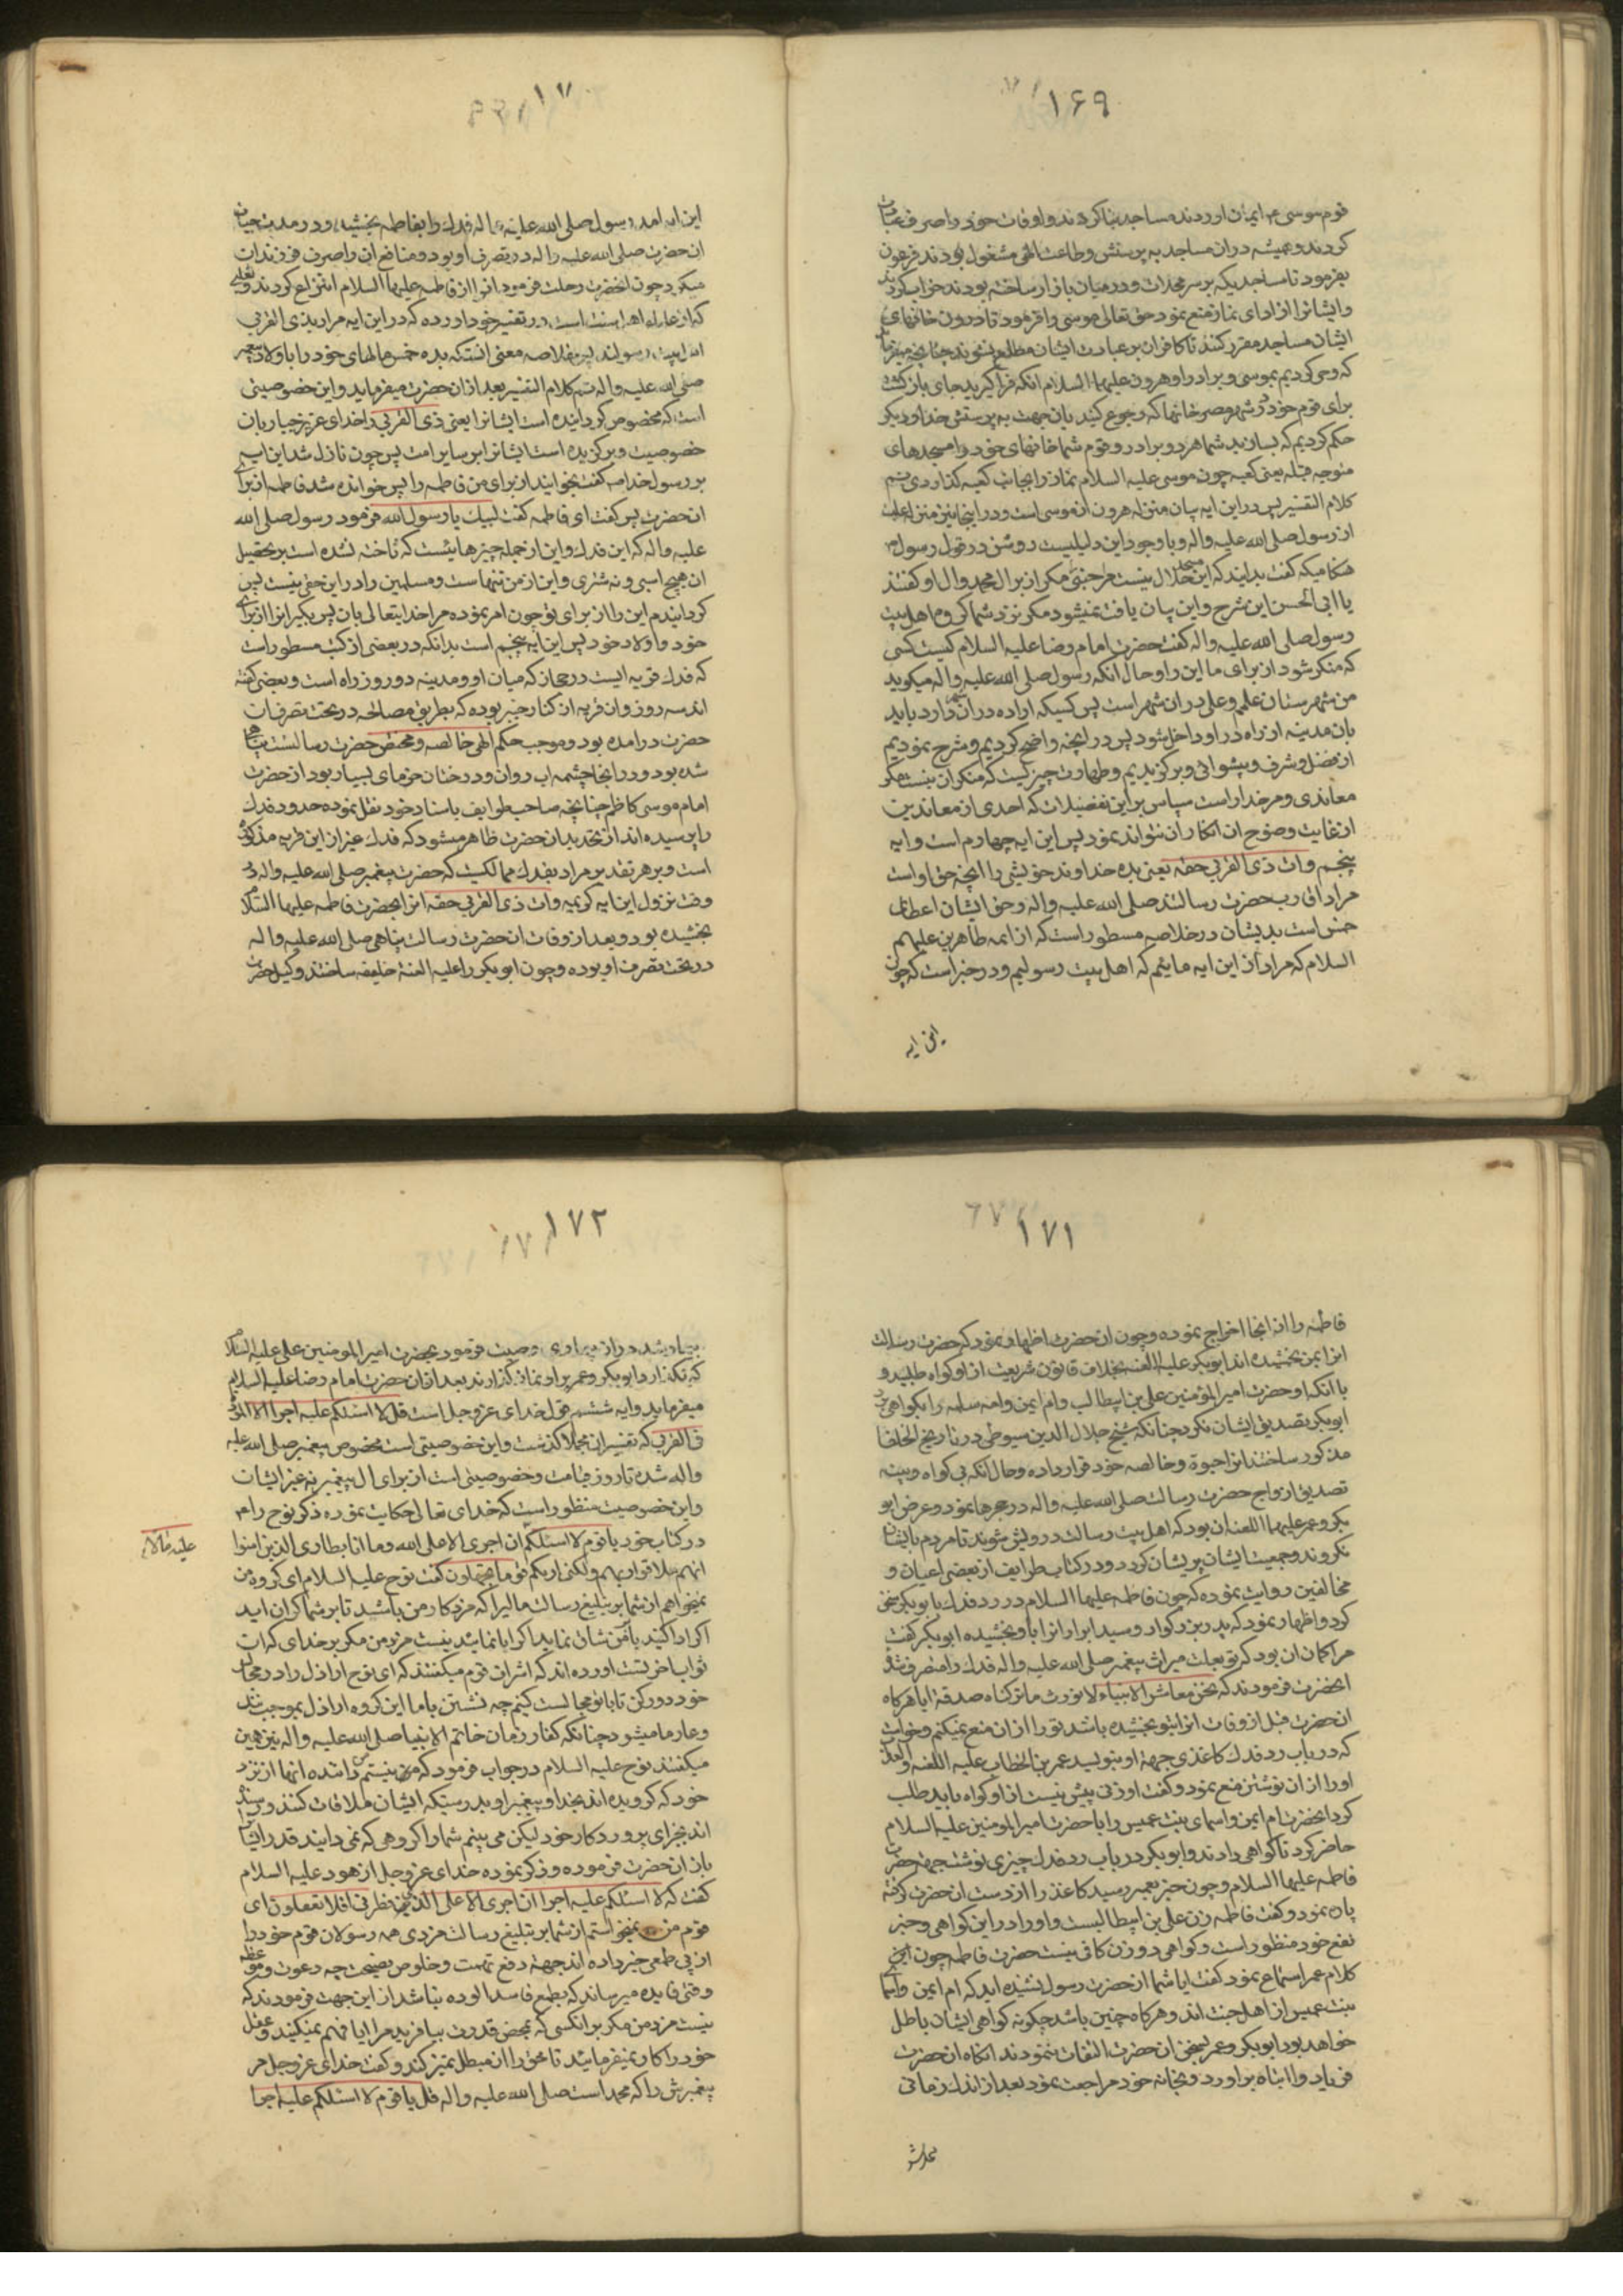 ۱۶۹
قوم موسی م ایمان اوردند مساجد بنا کردند و اوقات خود را صرف عبادت
کردند و همیشه دران مساجد به پرستش و طاعت الهی مشغول بودند فرعون
بفرمود تا مساجدیکه بر سر محلات و در میان بازار ساخته بودند خراب کردند
و ایشانرا از ادای نماز منع نمود حق تعالی موسی را فرمود تا درون خانهای
ایشان مساجد مقرر کنند تا کافران بر عبادت ایشان مطلع نشوند چنانچه میفرماید
که وحی کردیم بموسی و برادر او هرون علیهما السلام انکه فرا کیرید جای بازکشت
برای قوم خود در شهر مصر خانها که رجوع کنید بان جهت به پرستش خدا و دیکر
حکم کردیم که بسازید شما هر دو برادر و قوم شما خانهای خود را مسجدهای
متوجه قبله یعنی کعبه چون موسی علیه السلام نماز را بجانب کعبه کذاردی ختم
کلام التفسیر پس در این ایه بیان منزله هرون از موسی است و در اینجا نیز منزله علیست
از رسول صلی الله علیه واله و با وجود این دلیلیست روشن در قول رسول م
هنکامیکه کفت بدانید که این مسجد حلال نیست مر جنبی مکر از برای محمد و ال او کفتند
یا ابی الحسن این شرح و این بیان یافت نمیشود مکر نزد شما کروه اهل بیت
رسول صلی الله علیه واله کفت حضرت امام رضا علیه السلام کیست کسی
که منکر شود از برای ما این را و حال انکه رسول صلی الله علیه واله میکوید
من شهرستان علمم و علی در ان شهر است پس کسیکه اراده در ان شهر دارد باید
بان مدینه از راه در او داخل شود پس در انچه واضح کردیم و شرح نمودیم
از فضل و شرف و پیشوائی و برکزیدیم و طهارت چیزیست که منکر ان نیست مکر
معاندی و مر خدا راست سپاس بر این تفضیلات که احدی از معاندین
از غایت وضوح ان انکار ان نتواند نمود پس این ایه چهارم است و ایه
پنجم وات ذی القربی حقه یعنی بده خداوند خویشی را انچه حق او است
مراد اقارب حضرت رسالتند صلی الله علیه واله و حق ایشان اعطای
خمس است بدیشان در خلاصه مسطور است که از ائمه طاهرین علیهم
السلام که مراد از این ایه مائیم که اهل بیت رسولیم و در خبر است که چون
این ایه
۱۷۰
این ایه امد رسول صلی الله علیه واله فدک را بفاطمه بخشید و در مدت حیات
ان حضرت صلی الله علیه واله در تصرف او بود و منافع ان را صرف فرزندان
میکرد چون انحضرت رحلت فرمود انرا از فاطمه علیها السلام انتزاع کردند و ثعلبی
که از علماء اهل سنت است در تفسیر خود اورده که در این ایه مراد بذی القربی
اهل بیت رسولند پس خلاصه معنی انست که بده خمس مالهای خود را باولاد پیغمبر
صلی الله علیه واله تم کلام التفسیر بعد از ان حضرت میفرماید و این خصوصیتی
است که مخصوص کردانیده است ایشانرا یعنی ذی القربی را خدای عزیز جبار بان
خصوصیت و برکزیده است ایشانرا بر سایر امت پس چون نازل شد این ایه
بر رسول خدا صه کفت بخوانید از برای من فاطمه را پس خوانده شد فاطمه از برای
انحضرت پس کفت ای فاطمه کفت لبیک یا رسول الله فرمود رسول صلی الله
علیه واله که این فدک و این از جمله چیزهائیست که تاخته نشده است بر تحصیل
ان هیچ اسبی و نه شتری و این از من تنهاست و مسلمین را در این حقی نیست پس
کردانیدم این را از برای تو چون امر نموده مرا خدایتعالی بان پس بکیر انرا از برای
خود و اولاد خود پس این ایه پنجم است بدانکه در بعضی از کتب مسطور است
که فدک قریه ایست در حجاز که میان او و مدینه دو روز راه است و بعضی کفته
اند سه روز و ان قریه از کنار خیبر بوده که بطریق مصالحه در تحت تصرف ان
حضرت درامده بود و بموجب حکم الهی خالصه و مختص حضرت رسالت پناهی
شده بود و در انجا چشمه اب روان و درختان خرمای بسیار بود از حضرت
امام موسی کاظم چنانچه صاحب طوایف باسناد خود نقل نموده حدود فدک
را پرسیده اند از تحدید ان حضرت ظاهر میشود که فدک غیر از این قریه مذکوره
است و بر هر تقدیر مراد بفدک ممالکیست که حضرت پیغمبر صلی الله علیه واله در
وقت نزول این ایه کریمه وات ذی القربی حقه انرا بحضرت فاطمه علیها السلام
بخشیده بود و بعد از وفات ان حضرت رسالت پناهی صلی الله علیه واله
در تحت تصرف او بوده و چون ابو بکر را علیه اللعنة خلیفه ساختند وکیل حضرت
۱۷۱
فاطمه را از انجا اخراج نموده و چون ان حضرت اظهار نمود که حضرت رسالت
انرا بمن بخشیده اند ابو بکر علیه اللعنه بخلاف قانون شریعت از او کواه طلبید و
با انکه او حضرت امیر المؤمنین علی بن ابیطالب وام ایمن وام سلمه را بکواهی برد
ابو بکر تصدیق ایشان نکرد چنانکه شیخ جلال الدین سیوطی در تاریخ الخلفا
مذکور ساخته انرا حبوة و خالصه خود قرار داده و حال انکه بی کواه و بینه
تصدیق ازواج حضرت رسالت صلی الله علیه واله در حجرها نمود و غرض ابو
بکر و عمر علیهما اللعنه ان بود که اهل بیت رسالت درویش شوند تا مردم بایشان
نکروند و جمعیت ایشان پریشان کردد و در کتاب طرایف از بعضی اعیان و
مخالفین روایت نموده که چون فاطمه علیها السلام در رد فدک با بو بکر سخن
کرد و اظهار نمود که پدر بزرکوار و سید ابرار انرا باو بخشیده ابو بکر کفت
مرا کمان ان بود که تو بعلت میراث پیغمبر صلی الله علیه واله فدک را متصرف شدی
انحضرت فرمودند که نحن معاشر الانبیاء لا نورث ما ترکناه صدقة ایا هرکاه
ان حضرت قبل از وفات انرا بتو بخشیده باشد تو را از ان منع نمیکنم و خواست
که در باب رد فدک کاغذی جهة او بنویسد عمر بن الخطاب علیه اللعنه والعذاب
او را از ان نوشتن منع نمود و کفت او زنی بیش نیست از او کواه باید طلب
کرد انحضرت ام ایمن و اسمای بنت عمیس را با حضرت امیر المؤمنین علیه السلام
حاضر کرد تا کواهی دادند و ابو بکر در باب رد فدک چیزی نوشت جهة حضرت
فاطمه علیها السلام و چون خبر بعمر رسید کاغذ را از دست ان حضرت کرفته
پاره نمود و کفت فاطمه زن علی بن ابیطالبست و او را در این کواهی و خبر
نفع خود منظور است و کواهی دو زن کافی نیست حضرت فاطمه چون این
کلام عمر استماع نمود کفت ایا شما از حضرت رسول نشنیده اید که ام ایمن و اسماء
بنت عمیس از اهل جنت اند و هرکاه چنین باشد چکونه کواهی ایشان باطل
خواهد بود ابو بکر و عمر بسخن ان حضرت التفات ننمودند انکاه ان حضرت
فریاد وا ابتاه براورد و بخانه خود مراجعت نمود بعد از اندک زمانی
۱۷۲
بیمار شد و از بیماری وصیت فرمود بحضرت امیر المؤمنین علی علیه السلام
که نکذارد ابو بکر و عمر بر او نماز کذارند بعد از ان حضرت امام رضا علیه السلام
میفرماید و ایه ششم قول خدای عزوجل است قل لا اسئلکم علیه اجرا الا المودة
فی القربی که تفسیر ان مجملا کذشت و این خصوصیتی است مخصوص پیغمبر صلی الله علیه
واله شده تا روز قیامت و خصوصیتی است از برای ال پیغمبر نه غیر ایشان
و این خصوصیت منظور است که خدای تعالی حکایت نموده ذکر نوح را م
در کتاب خود یا قوم لا اسئلکم ان اجری الا علی الله وما انا بطارد الذین امنوا
علیه مالا م
انهم ملاقوا ربهم ولکنی اریکم قوما تجهلون کفت نوح علیه السلام ای کروه من
نمیخواهم از شما بر تبلیغ رسالت مالی را که مزد کار من باشد تا بر شما کران اید
اکر ادا کنید یا بمن نشان نماید اکر ابا نمائید نیست مزد من مکر بر خدای که ان
ثواب اخرتست اورده اند که اشراف قوم میکفتند که ای نوح اراذل را در مجالس
خود دور کن تا با تو مجالست کنیم چه نشستن با ما این کروه اراذل موجب ننک
و عار ما میشود چنانکه کفار زمان خاتم الانبیا صلی الله علیه واله نیز همین
میکفتند نوح علیه السلام در جواب فرمود که من نیستم راننده انها از نزد
خود که کرویده اند بخدا و پیغمبر او بدرستیکه ایشان ملاقات کنند و رسنده
اند بجزای پروردکار خود لیکن می بینم شما را کروهی که نمی دانید قدر ایشانرا
باز ان حضرت فرموده و ذکر نموده خدای عزوجل از هود علیه السلام
کفت که لا اسئلکم علیه اجرا ان اجری الا علی الذی فطرنی افلا تعقلون ای
قوم من نمیخواستم از شما بر تبلیغ رسالت مزدی همه رسولان قوم خود را
از بی طمعی خبر داده اند جهة دفع تهمت و خلوص نصیحت چه دعوت و موعظه
وقتی فایده میرساند که بطمع فاسد الوده نباشد از این جهت فرمودند که
نیست مزد من مکر بر انکسی که بمحض قدرت بیافرید مرا ایا فهم نمیکنید و عقل
خود را کار نمیفرمائید تا محق را از مبطل تمیز کند و کفت خدای عزوجل مر
پیغمبرش را که محمد است صلی الله علیه واله قل یا قوم لا اسئلکم علیه اجرا